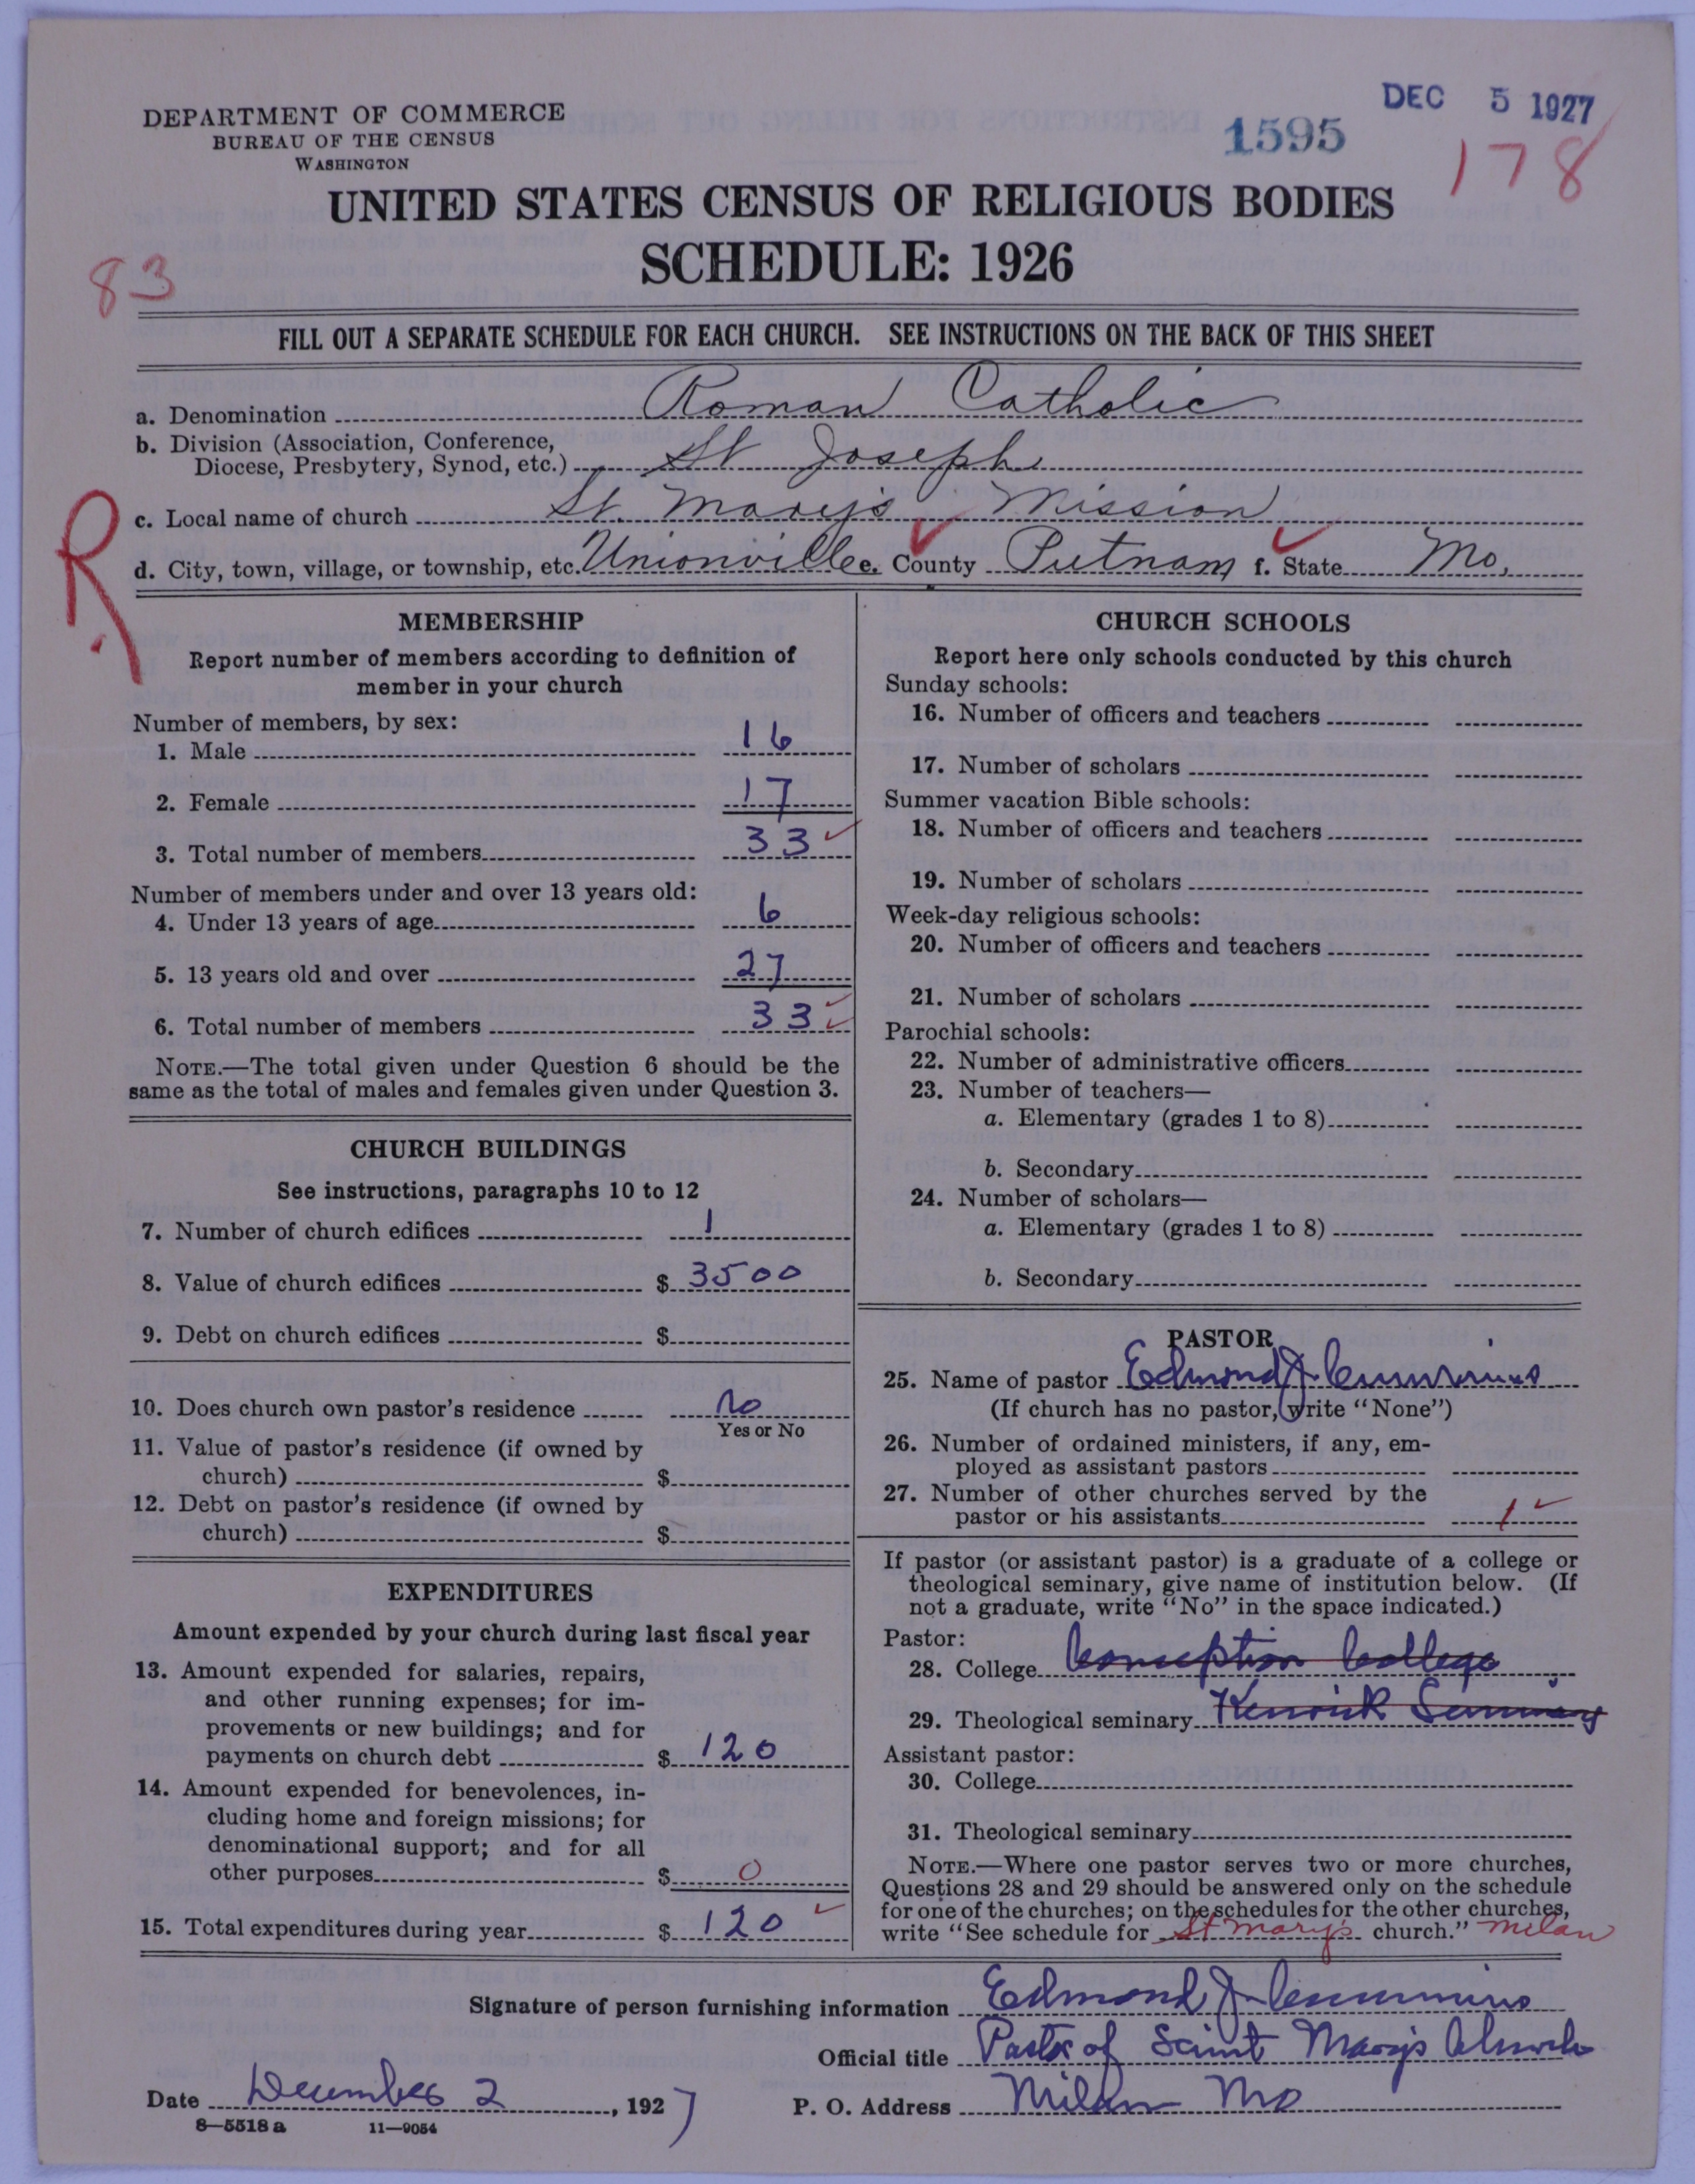 DEPARTMENT OF COMMERCE
BUREAU OF THE CENSUS
WASHINGTON
1595
DEC 5 1927
178
UNITED STATES CENSUS OF RELIGIOUS BODIES
SCHEDULE: 1926
83
FILL OUT A SEPARATE SCHEDULE FOR EACH CHURCH. SEE INSTRUCTIONS ON THE BACK OF THIS SHEET
a. Denomination Roman Catholic
b. Division (Association, Conference,
Diocese, Presbytery, Synod, etc.) St Joseph
c. Local name of church St. Mary's Mission
d. City, town, village, or township, etc. Unionville e. County Putnam f. State Mo.
R.
MEMBERSHIP
Report number of members according to definition of
member in your church
Number of members, by sex:
1. Male 16
2. Female 17
3. Total number of members 33
Number of members under and over 13 years old:
4. Under 13 years of age 6
5. 13 years old and over 27
6. Total number of members 33
NOTE.—The total given under Question 6 should be the
same as the total of males and females given under Question 3.
CHURCH BUILDINGS
See instructions, paragraphs 10 to 12
7. Number of church edifices 1
8. Value of church edifices $ 3500
9. Debt on church edifices $
10. Does church own pastor's residence No
Yes or No
11. Value of pastor's residence (if owned by
church) $
12. Debt on pastor's residence (if owned by
church) $
EXPENDITURES
Amount expended by your church during last fiscal year
13. Amount expended for salaries, repairs,
and other running expenses; for im-
provements or new buildings; and for
payments on church debt $ 120
14. Amount expended for benevolences, in-
cluding home and foreign missions; for
denominational support; and for all
other purposes $ 0
15. Total expenditures during year $ 120
CHURCH SCHOOLS
Report here only schools conducted by this church
Sunday schools:
16. Number of officers and teachers
17. Number of scholars
Summer vacation Bible schools:
18. Number of officers and teachers
19. Number of scholars
Week-day religious schools:
20. Number of officers and teachers
21. Number of scholars
Parochial schools:
22. Number of administrative officers
23. Number of teachers—
a. Elementary (grades 1 to 8)
b. Secondary
24. Number of scholars—
a. Elementary (grades 1 to 8)
b. Secondary
PASTOR
25. Name of pastor Edmond J. Cummins
(If church has no pastor, write "None")
26. Number of ordained ministers, if any, em-
ployed as assistant pastors
27. Number of other churches served by the
pastor or his assistants 1
If pastor (or assistant pastor) is a graduate of a college or
theological seminary, give name of institution below. (If
not a graduate, write "No" in the space indicated.)
Pastor:
28. College Conception College
29. Theological seminary Kenrick Seminary
Assistant pastor:
30. College
31. Theological seminary
NOTE.—Where one pastor serves two or more churches,
Questions 28 and 29 should be answered only on the schedule
for one of the churches; on the schedules for the other churches,
write "See schedule for St Mary's church." Milan
Signature of person furnishing information Edmond J. Cummins
Official title Pastor of Saint Mary's Church
Date December 2, 1927
P. O. Address Milan Mo
8—5518 a 11—9054